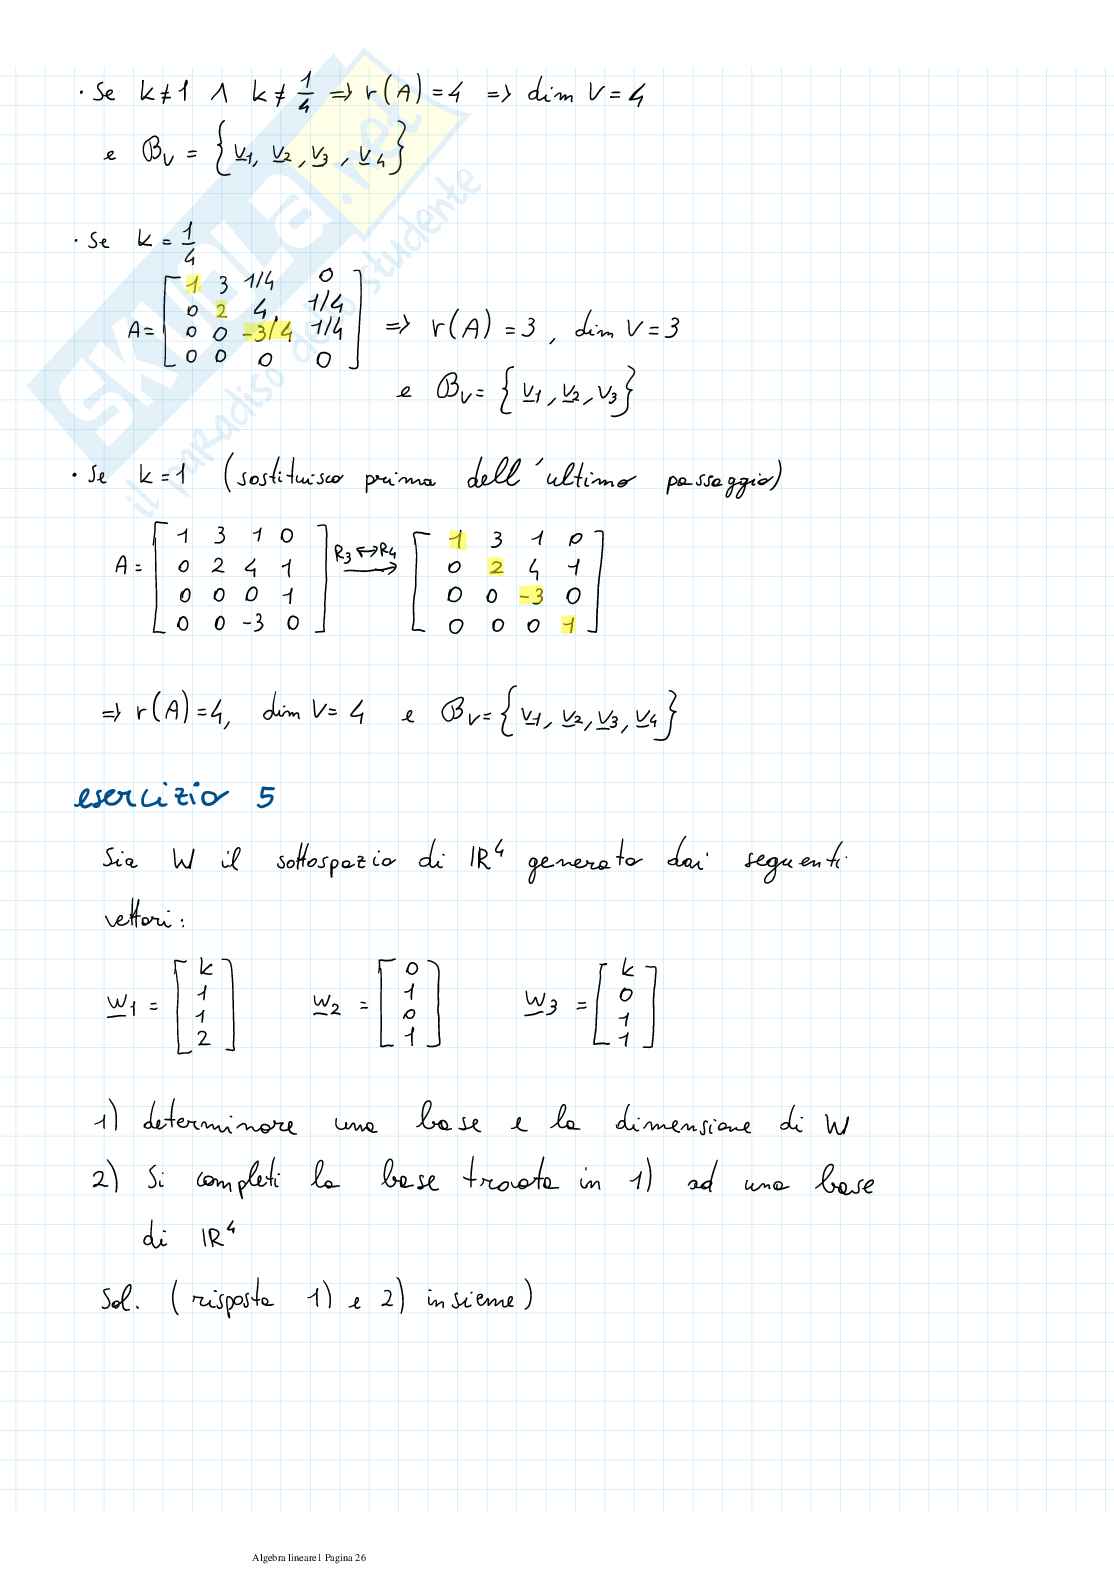 · Se k≠1 ∧ k≠1/4 => r(A)=4 => dim V=4
e B_V = {v1, v2, v3, v4}
· Se k = 1/4
A = [1 3 1/4 0
0 2 4 1/4
0 0 -3/4 1/4
0 0 0 0] => r(A)=3, dim V=3
e B_V = {v1, v2, v3}
· Se k=1 (sostituisco prima dell'ultimo passaggio)
A = [1 3 1 0
0 2 4 1
0 0 0 1
0 0 -3 0] R3↔R4 → [1 3 1 0
0 2 4 1
0 0 -3 0
0 0 0 1]
=> r(A)=4, dim V=4 e B_V={v1, v2, v3, v4}
esercizio 5
Sia W il sottospazio di IR^4 generato dai seguenti
vettori:
w1 = [k 1 1 2] w2 = [0 1 0 1] w3 = [k 0 1 1]
1) determinare una base e la dimensione di W
2) Si completi la base trovata in 1) ad una base
di IR^4
Sol. (risposta 1) e 2) insieme)
SKUOLA.net
il paradiso dello studente
Algebra lineare1 Pagina 26